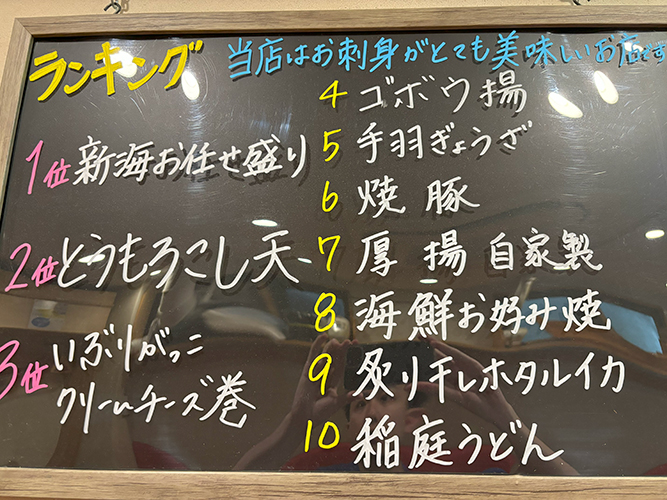 ランキング
当店はお刺身がとても美味しいお店です
1位 新海お任せ盛り
2位 とうもろこし天
3位 いぶりがっこ
クリームチーズ巻
4 ゴボウ揚
5 手羽ぎょうざ
6 焼豚
7 厚揚 自家製
8 海鮮お好み焼
9 炙り干しホタルイカ
10 稲庭うどん